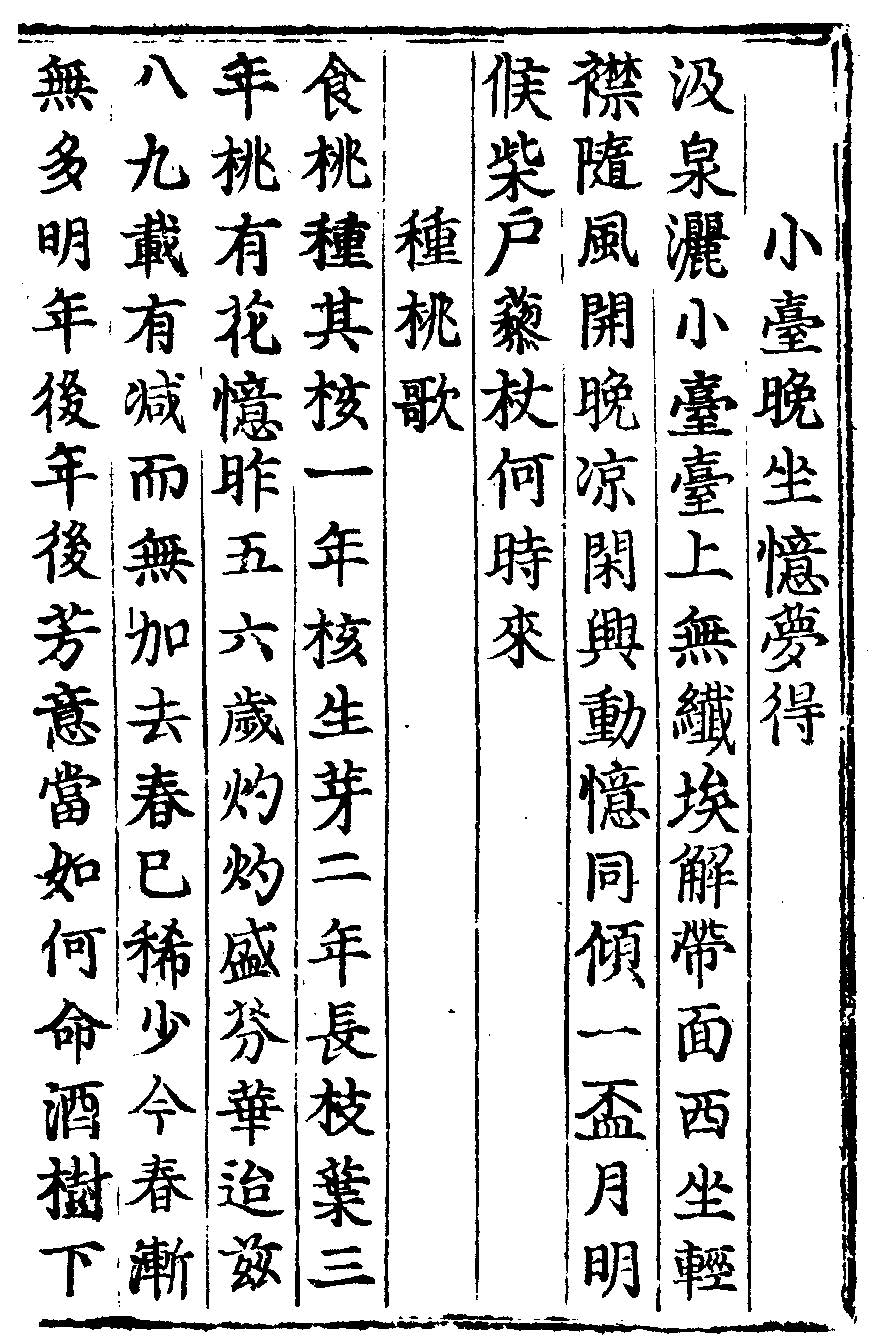 小臺晚坐憶夢得
汲泉灑小臺臺上無纖埃解帶面西坐輕
襟隨風開晚凉閑興動憶同傾一盃月明
候柴戶藜杖何時來
種桃歌
食桃種其核一年核生芽二年長枝葉三
年桃有花憶昨五六歲灼灼盛芬華迨兹
八九載有减而無加去春已稀少今春漸
無多明年後年後芳意當如何命酒樹下